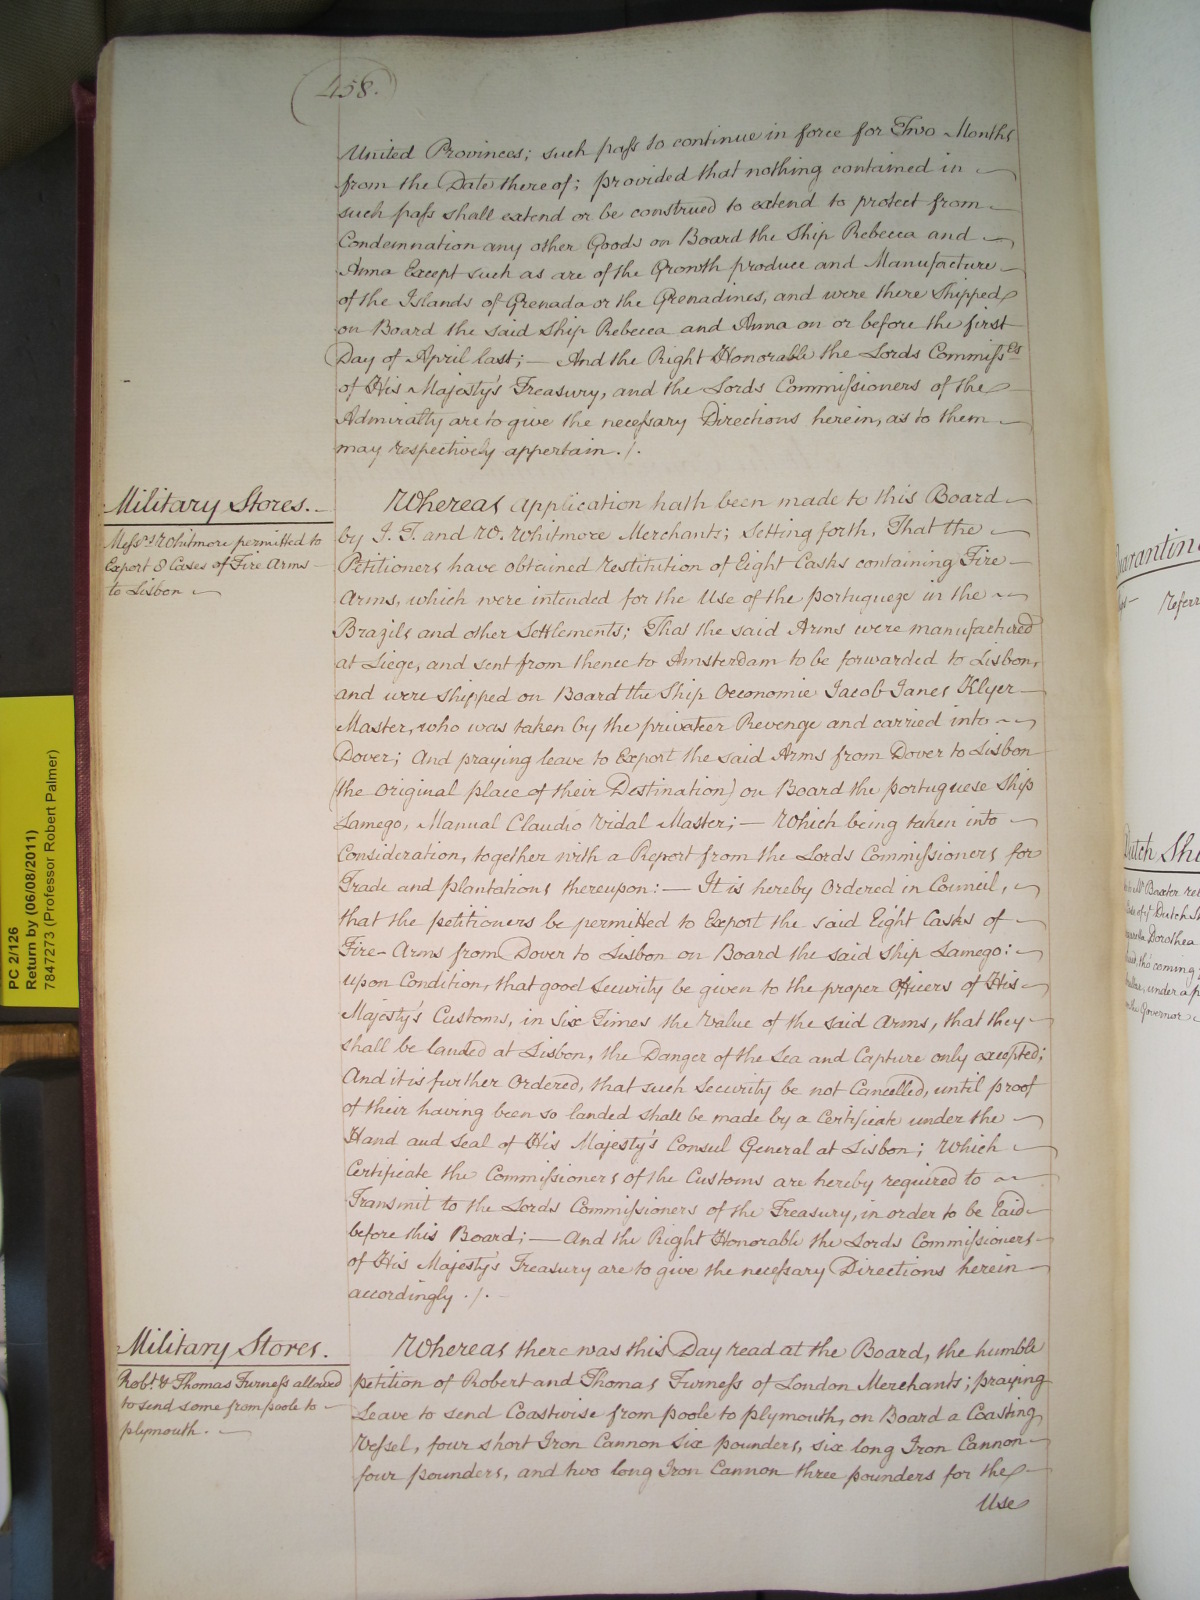 458.
United Provinces; such pass to continue in force for Two Months
from the Date thereof; provided that nothing contained in
such pass shall extend or be construed to extend to protect from
Condemnation any other Goods on Board the Ship Rebecca and
Anna Except such as are of the Growth produce and Manufacture
of the Islands of Grenada or the Grenadines, and were there Shipped
on Board the said Ship Rebecca and Anna on or before the first
Day of April last; — And the Right Honorable the Lords Commissrs
of His Majesty's Treasury, and the Lords Commissioners of the
Admiralty are to give the necessary Directions herein, as to them
may respectively appertain ./.
Military Stores.
Messrs Whitmore permitted to
Export 8 Cases of Fire Arms
to Lisbon
Whereas Application hath been made to this Board
by I. T. and W. Whitmore Merchants; Setting forth, That the
Petitioners have obtained restitution of Eight Casks containing Fire
Arms, which were intended for the Use of the portugueze in the
Brazils and other Settlements; That the said Arms were manufactured
at Liege, and sent from thence to Amsterdam to be forwarded to Lisbon,
and were shipped on Board the Ship Oeconomie Jacob Janes Klyer
Master, who was taken by the privateer Revenge and carried into
Dover; And praying leave to Export the said Arms from Dover to Lisbon
(the original place of their Destination) on Board the portuguese Ship
Lamego, Manual Claudio Vidal Master; — Which being taken into
Consideration, together with a Report from the Lords Commissioners for
Trade and plantations thereupon: — It is hereby Ordered in Council,
that the petitioners be permitted to Export the said Eight Casks of
Fire-Arms from Dover to Lisbon on Board the said Ship Lamego:
upon Condition, that good Security be given to the proper Officers of His
Majesty's Customs, in Six Times the Value of the said Arms, that they
shall be landed at Lisbon, the Danger of the Sea and Capture only excepted;
And it is further Ordered, that such Security be not Cancelled, until proof
of their having been so landed shall be made by a Certificate under the
Hand and Seal of His Majesty's Consul General at Lisbon; Which
Certificate the Commissioners of the Customs are hereby required to
Transmit to the Lords Commissioners of the Treasury, in order to be laid
before this Board; — And the Right Honorable the Lords Commissioners
of His Majesty's Treasury are to give the necessary Directions herein
accordingly ./.
Military Stores.
Robt. & Thomas Furness allowed
to send some from poole to
plymouth.
Whereas there was this Day read at the Board, the humble
petition of Robert and Thomas Furness of London Merchants; praying
Leave to send Coastwise from poole to plymouth, on Board a Coasting
Vessel, four short Iron Cannon Six pounders, six long Iron Cannon
four pounders, and two long Iron Cannon three pounders for the
Use
PC 2/126
Return by (06/08/2011)
7847273 (Professor Robert Palmer)
Referr
Dutch Shi
Mr Baxter rel
Dutch Sh
Dorothea
coming
under a p
the Governor